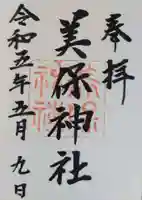 奉拝
美保神社
令和五年五月九日